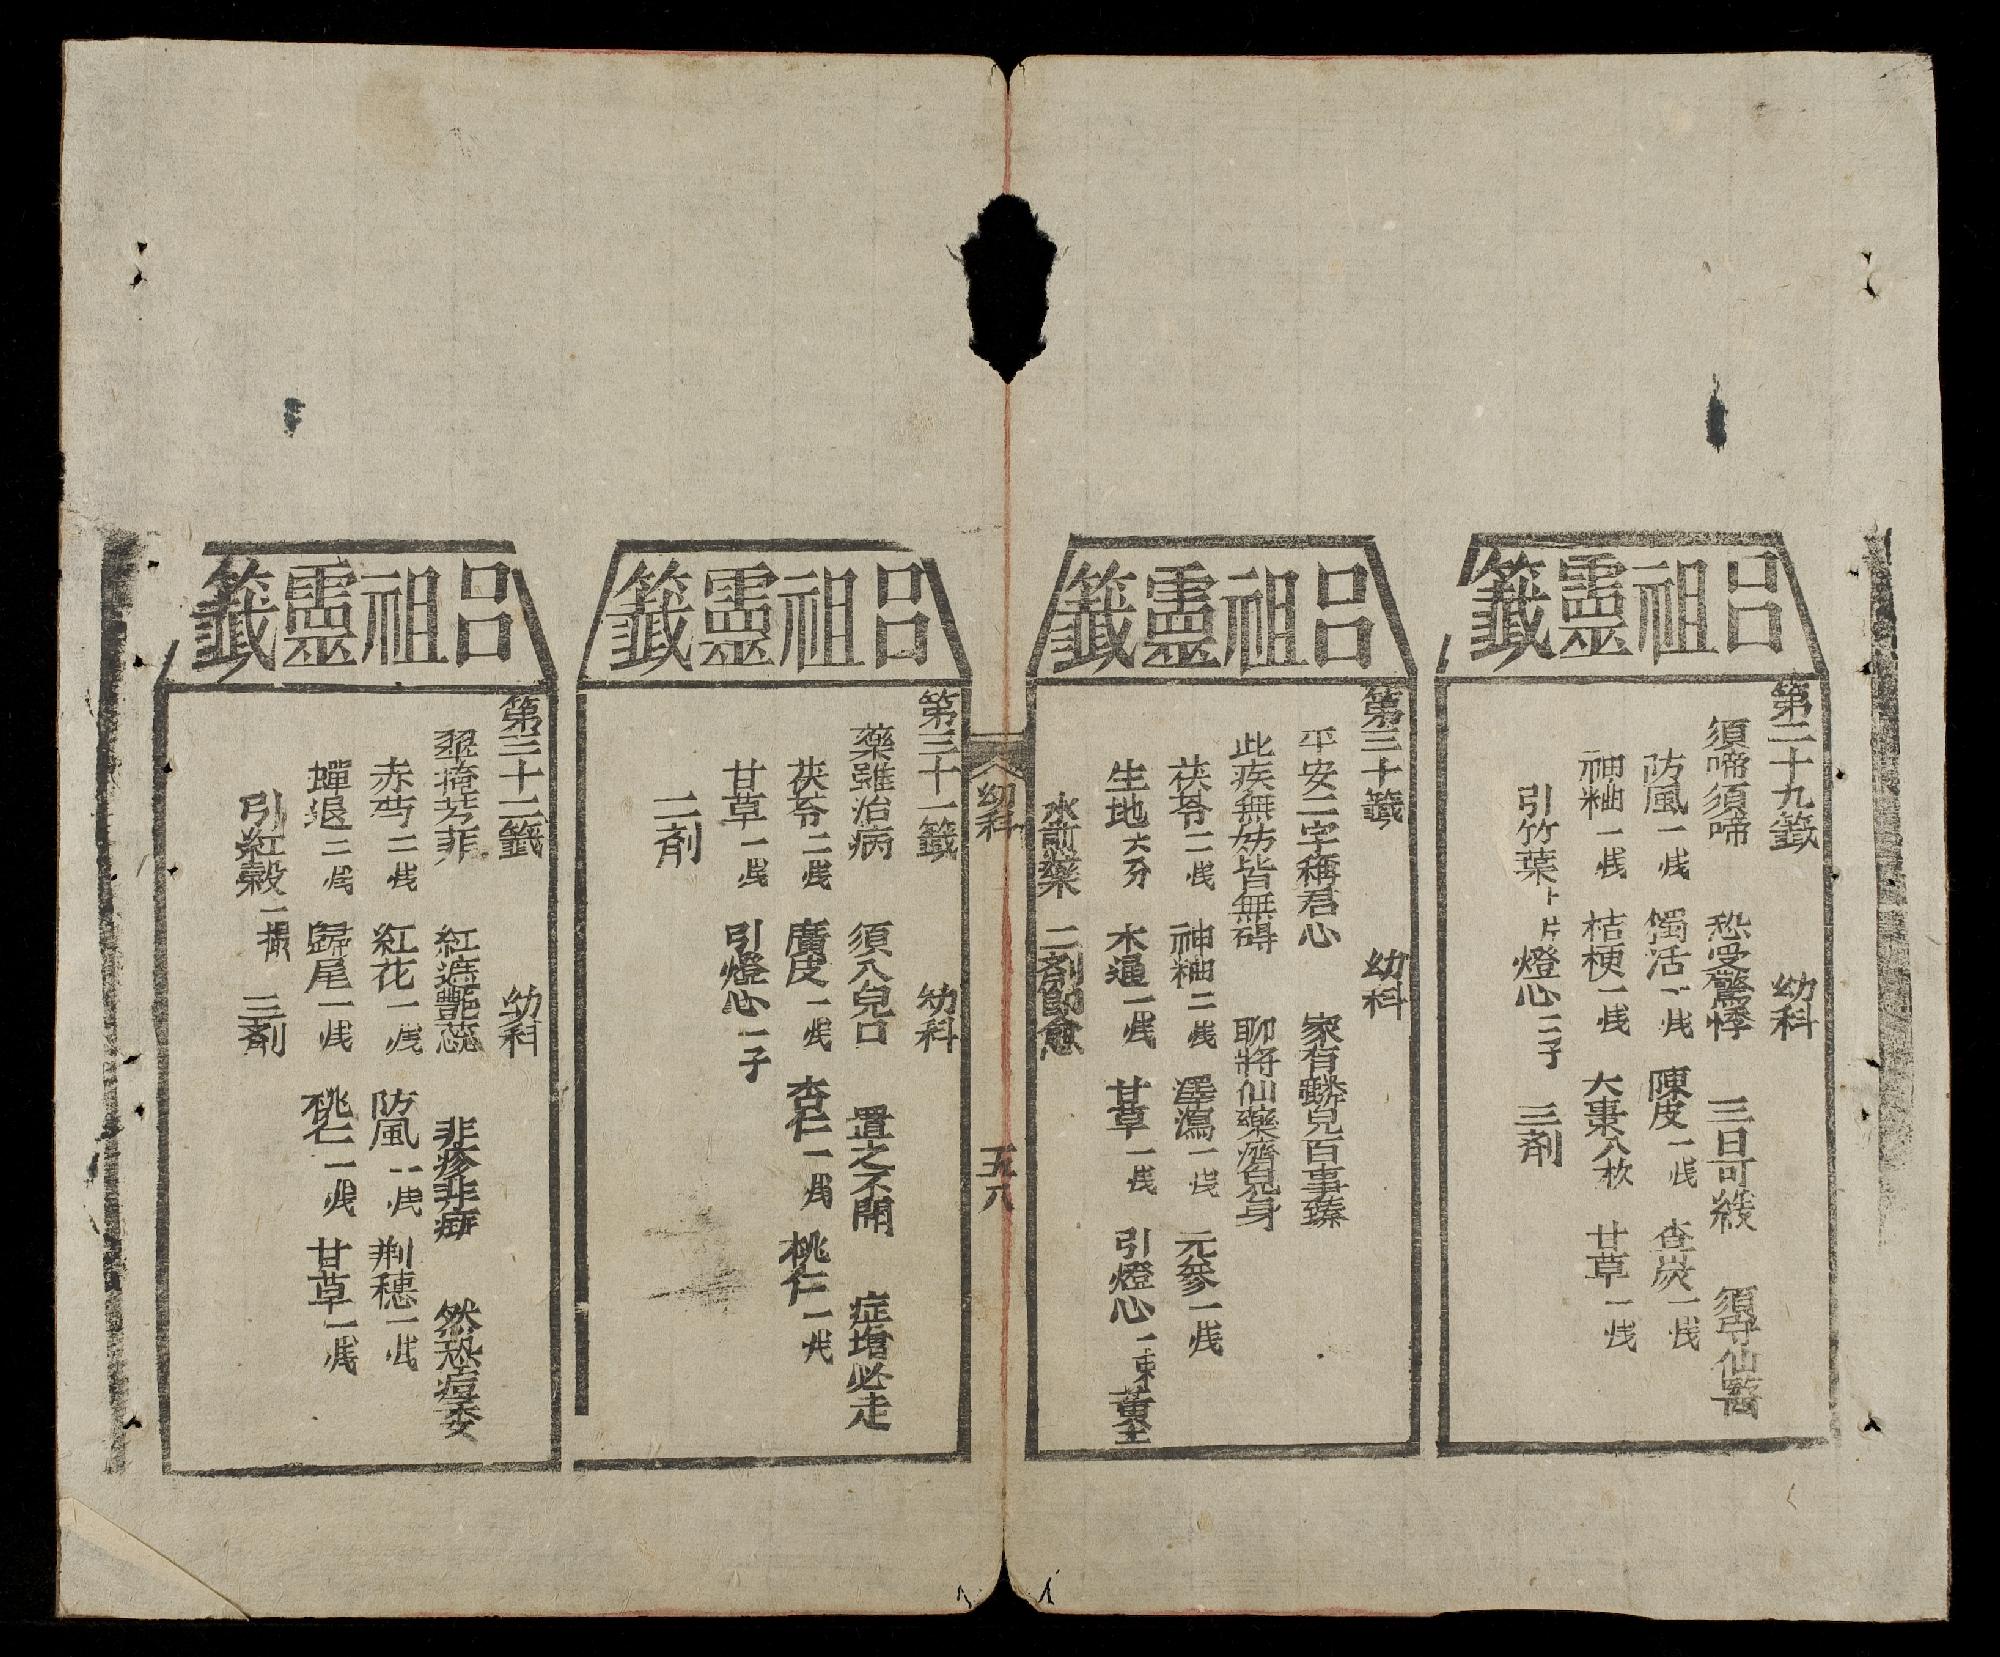 呂祖靈籤
第二十九籤 幼科
須啼須啼 恐受驚悸 三日可緩 須尋仙醫
防風一戋 獨活一戋 陳皮一戋 查炭一戋
神粬一戋 桔梗一戋 大棗八枚 甘草一戋
引竹葉十片 燈心二子 三剤
呂祖靈籤
第三十籤 幼科
平安二字稱君心 家有麟兒百事臻
此疾無妨皆無碍 聊將仙藥濟兒身
茯苓二戋 神粬二戋 澤瀉一戋 元參一戋
生地六分 木通一戋 甘草一戋 引燈心一束
水煎藥 二剤即愈
幼科 五八
呂祖靈籤
第三十一籤 幼科
藥雖治病 須入兒口 置之不聞 症增必走
茯苓二戋 廣皮一戋 杏仁一戋 桃仁一戋
甘草一戋 引燈心一子
二剤
呂祖靈籤
第三十二籤 幼科
翠掩芳菲 紅遮艷蕊 非疹非痳 然恐痘委
赤芍二戋 紅花一戋 防風一戋 荆穗一戋
蟬退二戋 歸尾一戋 桃仁一戋 甘草一戋
引紅穀一撮 三剤